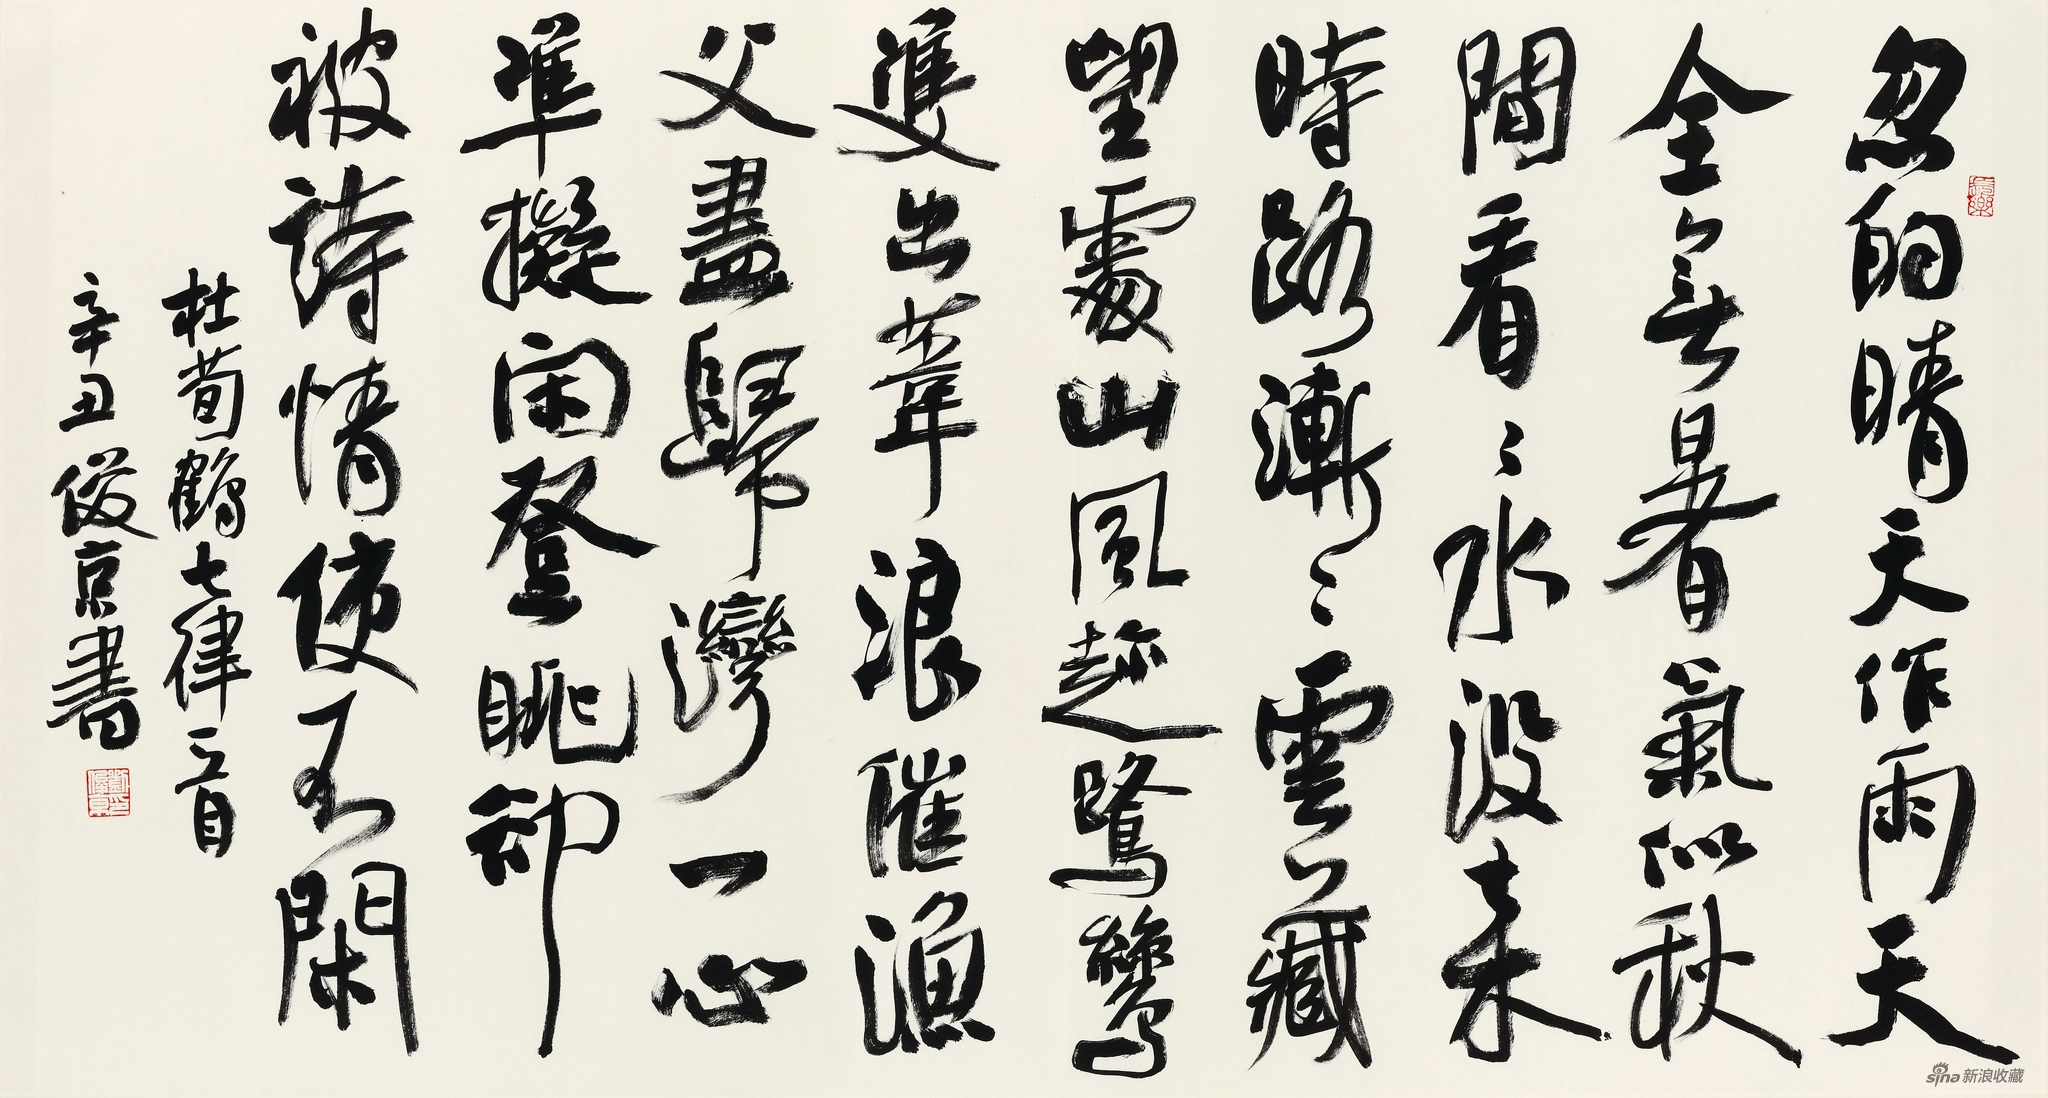 忽的晴天作雨天
全無暑氣似秋
間看〻水没来
時路漸〻雲藏
望處山風趁鷺鷥
隻出葦浪催漁
父盡歸灣一心
準擬閑登眺却
被詩情使不閑
杜荀鶴七律一首
辛丑俊京書
劉俊京印
sina新浪收藏